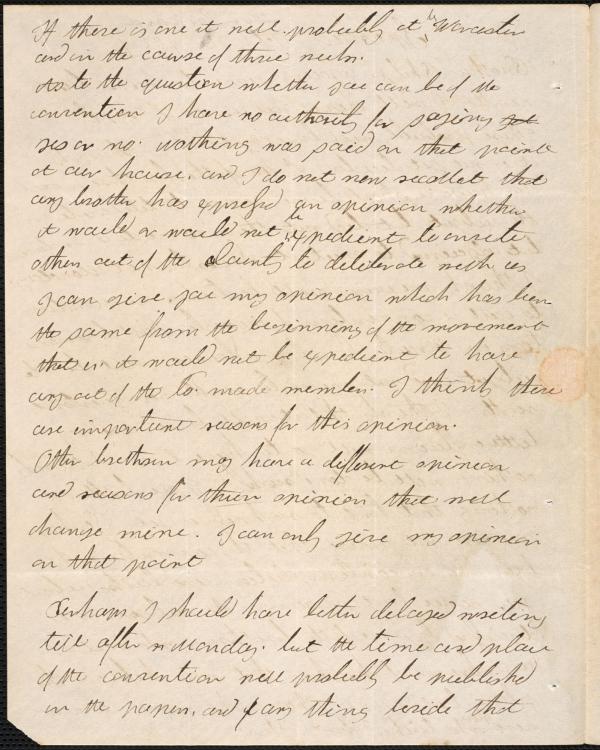 If there is one it will probably at Worcester
and in the course of three weeks.
As to the question whether you can be of the
convention I have no authority for saying
yes or no. Nothing was said on that point
at our house. and I do not now recollet that
any brother has expressed an opinion whether
it would or would not be expedient to invite
others out of the County to deliberate with us
I can give you my opinion which has been
the same from the beginning of the movement
that is it would not be expedient to have
any out of the Co. made members. I think there
are important reasons for this opinion.
Other brethren may have a different opinion
and reasons for their opinion that will
change mine. I can only give my opinion
on that point
Perhaps I should have better delayed writing
till after Monday. but the time and place
of the convention will probably be published
in the papers, and if any thing beside that